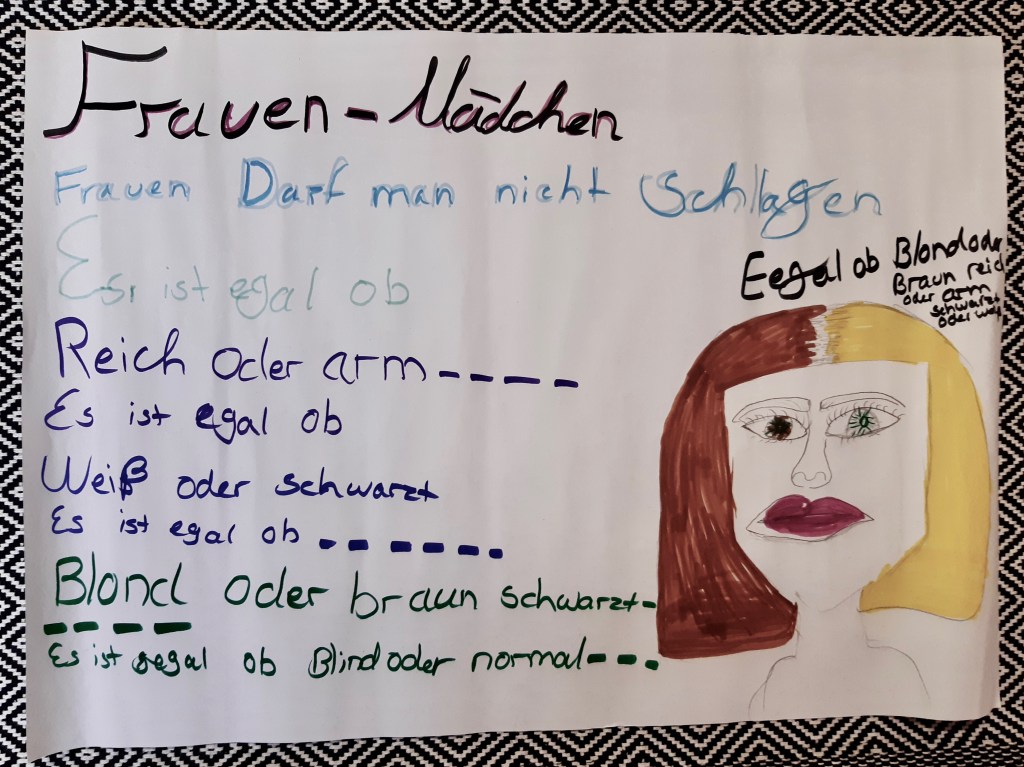 Frauen - Mädchen
Frauen Darf man nicht Schlagen
Es ist egal ob
Reich oder arm - - - -
Es ist egal ob
Weiß oder schwarzt
Es ist egal ob - - - - - -
Blond oder braun schwarzt -
- - - -
Es ist egal ob Blind oder normal - - -
Eegal ob Blond oder
Braun reich
oder arm
schwarzt
oder